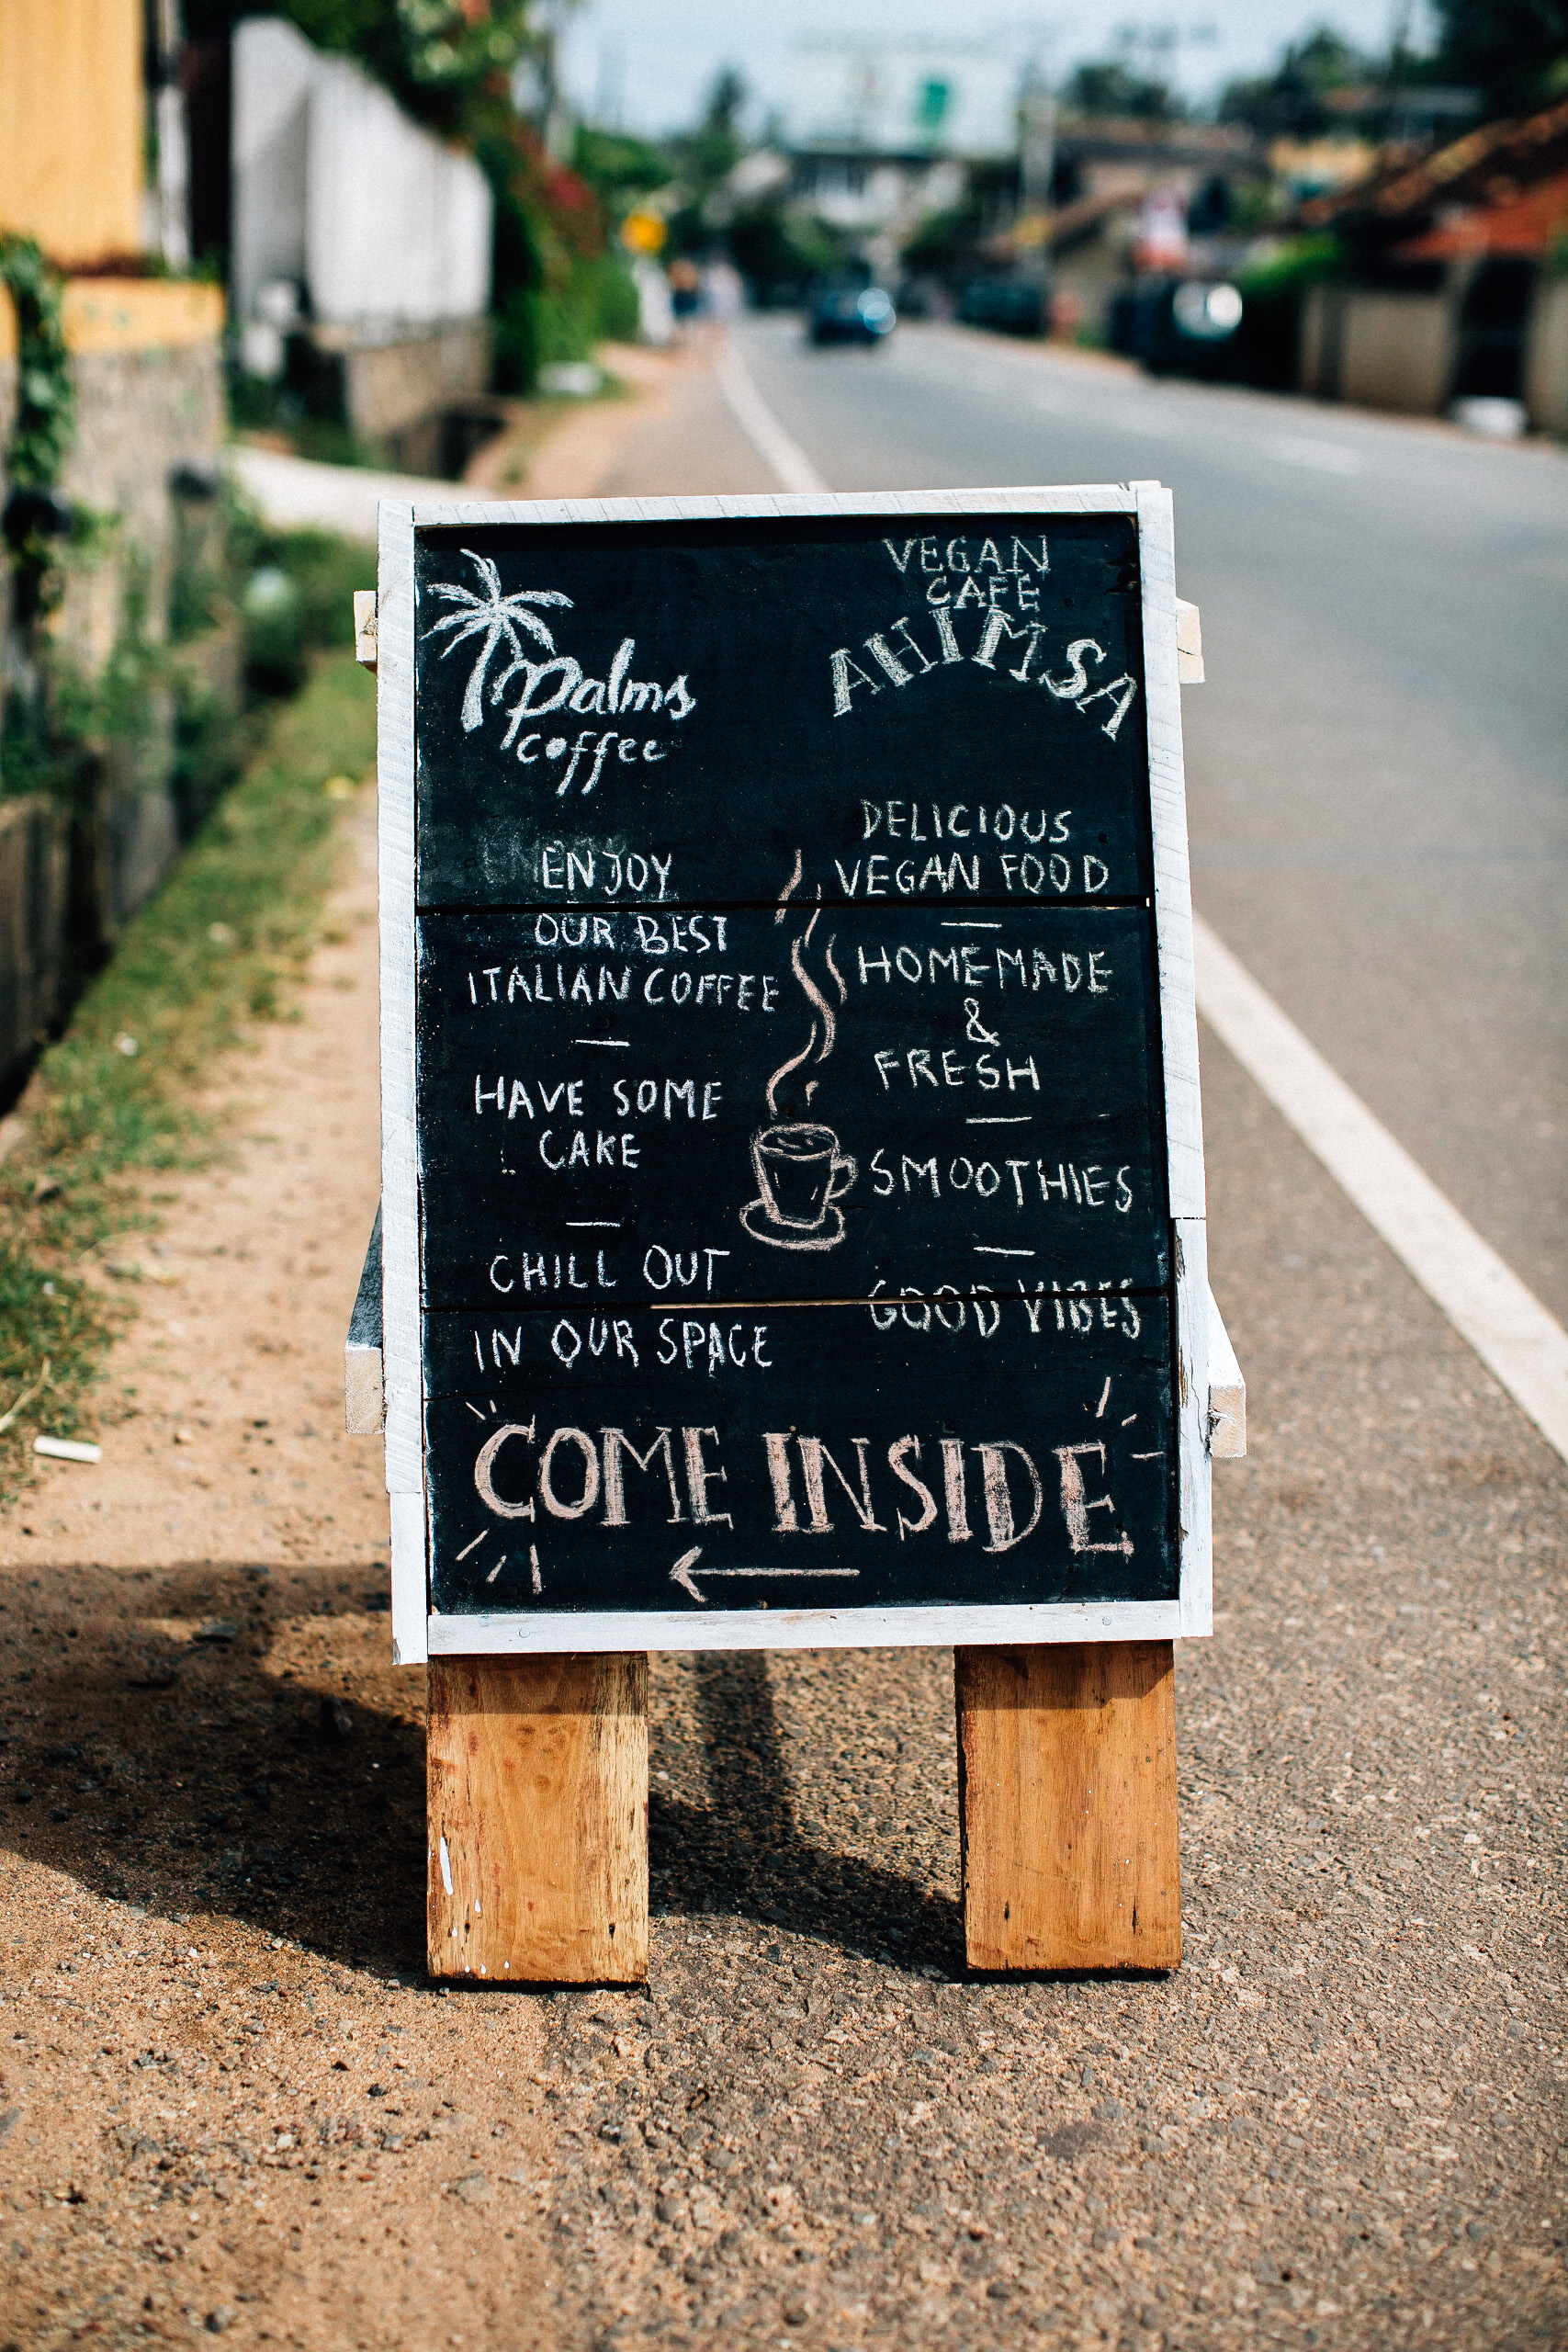 Palms
coffee
ENJOY
OUR BEST
ITALIAN COFFEE
HAVE SOME
CAKE
CHILL OUT
IN OUR SPACE
VEGAN
CAFE
AHIMSA
DELICIOUS
VEGAN FOOD
HOMEMADE
&
FRESH
SMOOTHIES
GOOD VIBES
COME INSIDE